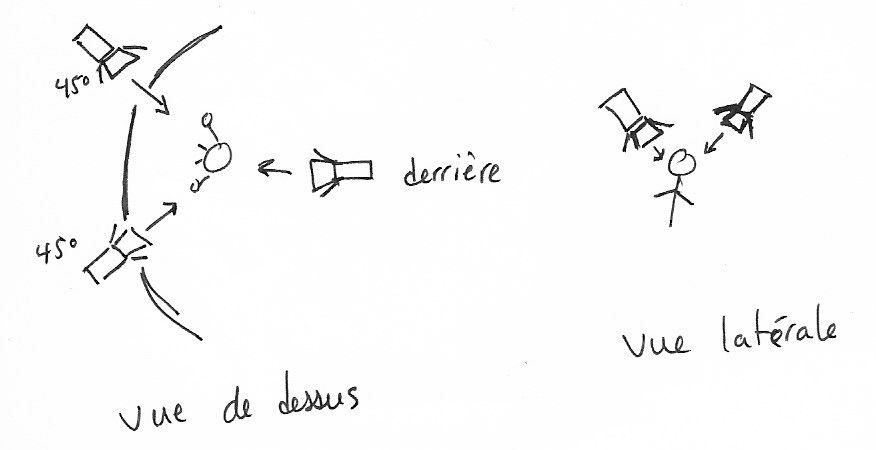 45°
derrière
45°
vue latérale
vue de dessus